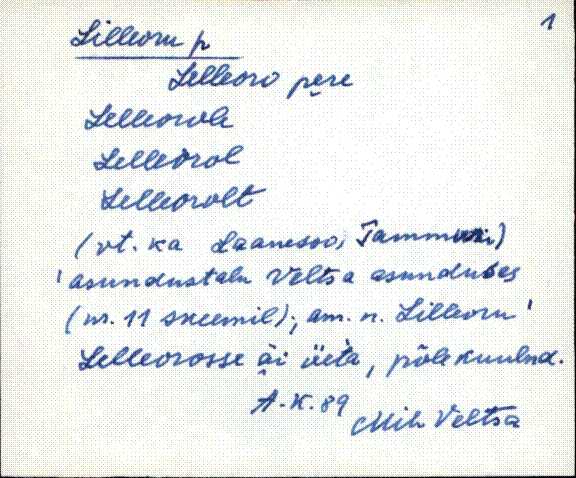 1
Lilleoru p
Lelleoro pere
Lelleorole
Lelleorol
Lelleorolt
(vt. ka Laanesoo, Tammuri)
'asundustalu Veltsa asunduses
(nr. 11 skeemil); am. n. Lilleoru'
Lelleorosse äi üeta, põle kuulnd.
A.K. 89
Mih Veltsa